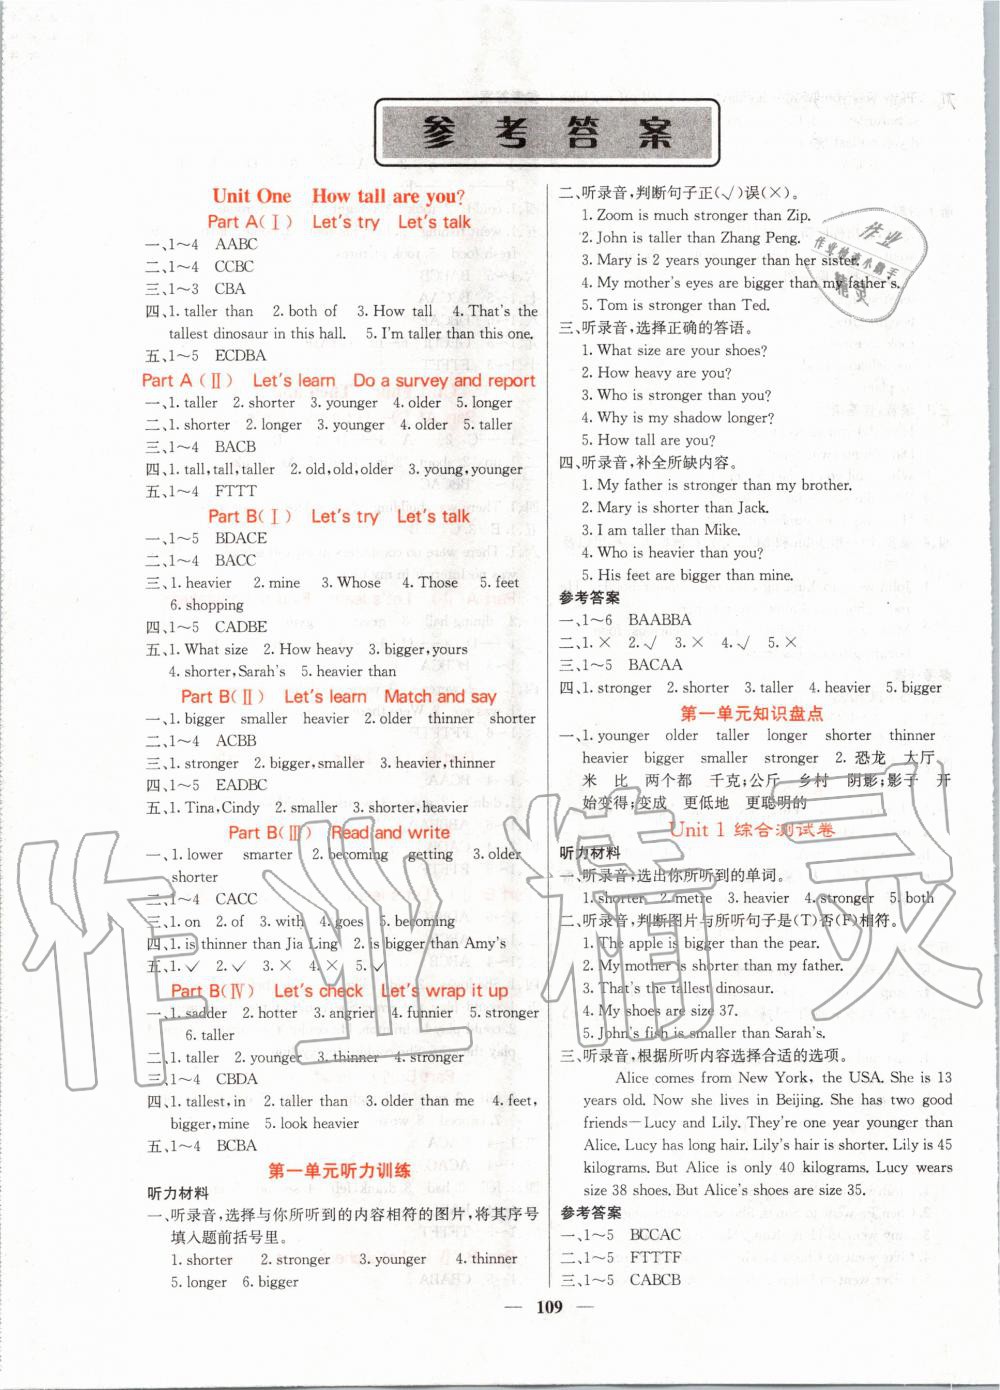 参考答案
Unit One How tall are you?
Part A(Ⅰ) Let's try Let's talk
一、1～4 AABC
二、1～4 CCBC
三、1～3 CBA
四、1. taller than 2. both of 3. How tall 4. That's the
tallest dinosaur in this hall. 5. I'm taller than this one.
五、1～5 ECDBA
Part A(Ⅱ) Let's learn Do a survey and report
一、1. taller 2. shorter 3. younger 4. older 5. longer
二、1. shorter 2. longer 3. younger 4. older 5. taller
三、1～4 BACB
四、1. tall,tall,taller 2. old,old,older 3. young,younger
五、1～4 FTTT
Part B(Ⅰ) Let's try Let's talk
一、1～5 BDACE
二、1～4 BACC
三、1. heavier 2. mine 3. Whose 4. Those 5. feet
6. shopping
四、1～5 CADBE
五、1. What size 2. How heavy 3. bigger,yours
4. shorter,Sarah's 5. heavier than
Part B(Ⅱ) Let's learn Match and say
一、1. bigger smaller heavier 2. older thinner shorter
二、1～4 ACBB
三、1. stronger 2. bigger,smaller 3. heavier,thinner
四、1～5 EADBC
五、1. Tina,Cindy 2. smaller 3. shorter,heavier
Part B(Ⅲ) Read and write
一、1. lower smarter 2. becoming getting 3. older
shorter
二、1～4 CACC
三、1. on 2. of 3. with 4. goes 5. becoming
四、1. is thinner than Jia Ling 2. is bigger than Amy's
五、1. √ 2. √ 3. × 4. × 5. √
Part B(Ⅳ) Let's check Let's wrap it up
一、1. sadder 2. hotter 3. angrier 4. funnier 5. stronger
6. taller
二、1. taller 2. younger 3. thinner 4. stronger
三、1～4 CBDA
四、1. tallest,in 2. taller than 3. older than me 4. feet,
bigger,mine 5. look heavier
五、1～4 BCBA
第一单元听力训练
听力材料
一、听录音,选择与你所听到的内容相符的图片,将其序号
填入题前括号里。
1. shorter 2. stronger 3. younger 4. thinner
5. longer 6. bigger
二、听录音,判断句子正(√)误(×)。
1. Zoom is much stronger than Zip.
2. John is taller than Zhang Peng.
3. Mary is 2 years younger than her sister.
4. My mother's eyes are bigger than my father's.
5. Tom is stronger than Ted.
三、听录音,选择正确的答语。
1. What size are your shoes?
2. How heavy are you?
3. Who is stronger than you?
4. Why is my shadow longer?
5. How tall are you?
四、听录音,补全所缺内容。
1. My father is stronger than my brother.
2. Mary is shorter than Jack.
3. I am taller than Mike.
4. Who is heavier than you?
5. His feet are bigger than mine.
参考答案
一、1～6 BAABBA
二、1. × 2. √ 3. × 4. √ 5. ×
三、1～5 BACAA
四、1. stronger 2. shorter 3. taller 4. heavier 5. bigger
第一单元知识盘点
一、1. younger older taller longer shorter thinner
heavier bigger smaller stronger 2. 恐龙 大厅
米 比 两个都 千克;公斤 乡村 阴影;影子 开
始变得;变成 更低地 更聪明的
Unit 1 综合测试卷
听力材料
一、听录音,选出你所听到的单词。
1. shorter 2. metre 3. heavier 4. stronger 5. both
二、听录音,判断图片与所听句子是(T)否(F)相符。
1. The apple is bigger than the pear.
2. My mother is shorter than my father.
3. That's the tallest dinosaur.
4. My shoes are size 37.
5. John's fish is smaller than Sarah's.
三、听录音,根据所听内容选择合适的选项。
Alice comes from New York, the USA. She is 13
years old. Now she lives in Beijing. She has two good
friends—Lucy and Lily. They're one year younger than
Alice. Lucy has long hair. Lily's hair is shorter. Lily is 45
kilograms. But Alice is only 40 kilograms. Lucy wears
size 38 shoes. But Alice's shoes are size 35.
参考答案
一、1～5 BCCAC
二、1～5 FTTTF
三、1～5 CABCB
— 109 —
作业精灵